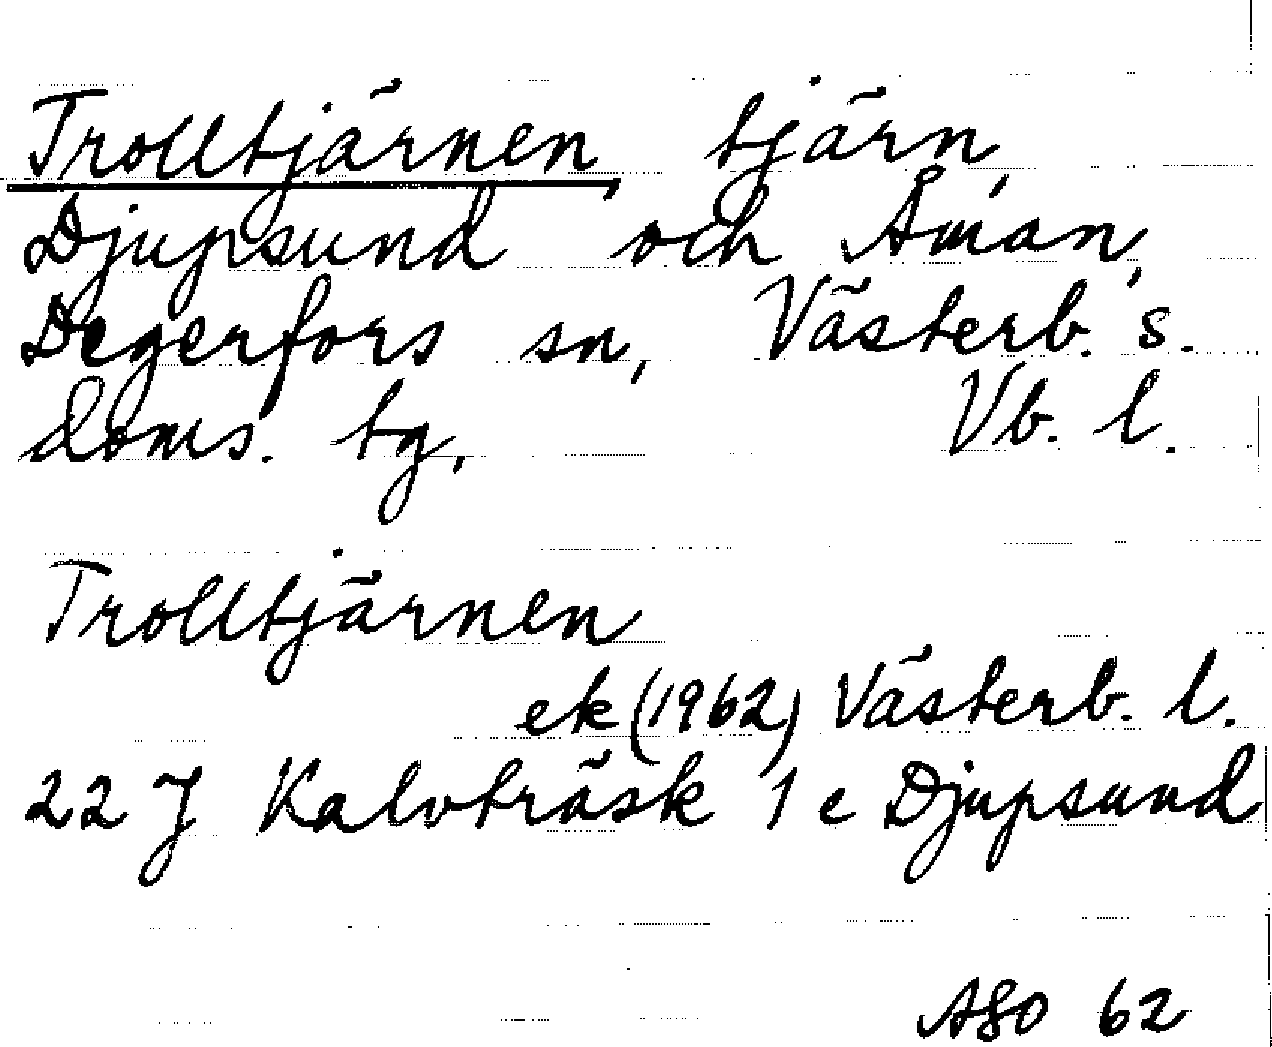 Trolltjärnen, tjärn,
Djupsund och Åman,
Degerfors sn, Västerb. s.
doms. tg, Vb. l.
Trolltjärnen
ek (1962) Västerb. l.
22 J Kalvträsk 1 e Djupsund
ASO 62